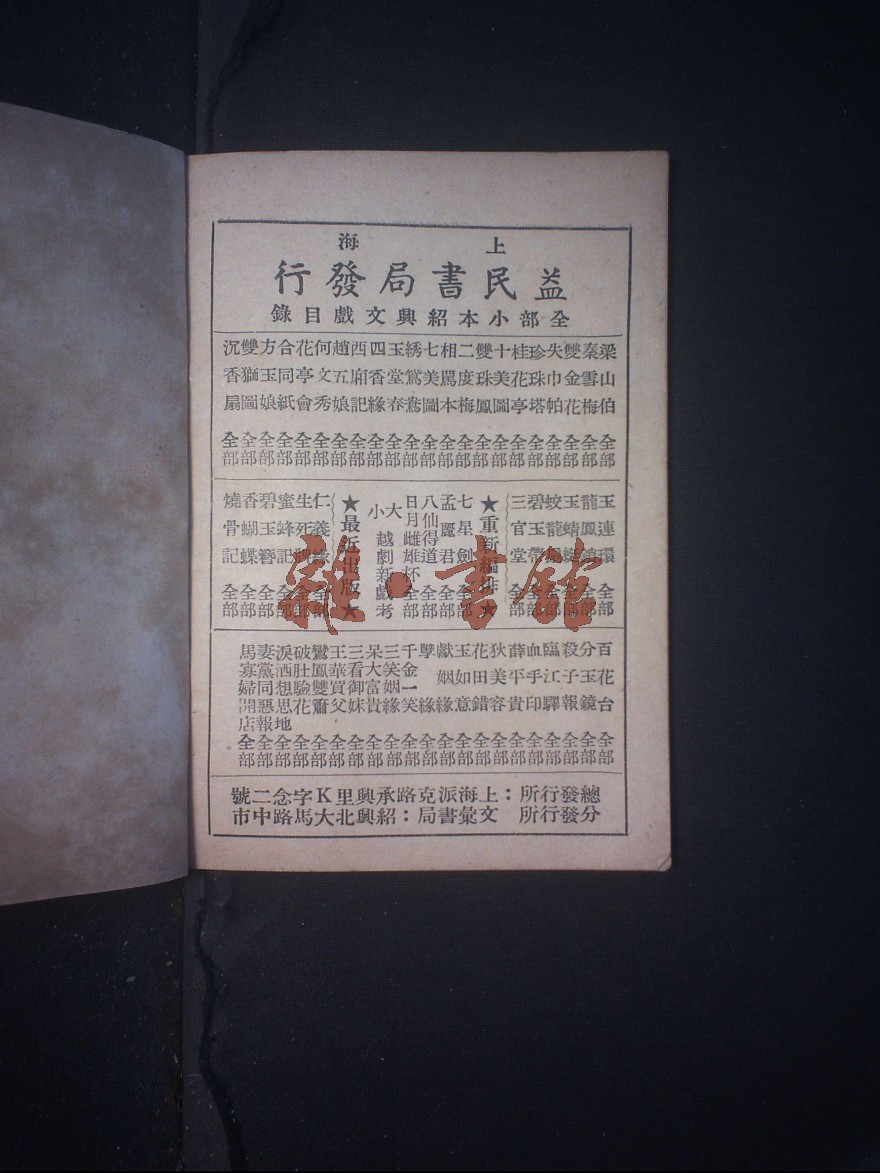 上海
益民書局發行
全部小本紹興文戲目錄
梁山伯全部
秦雪梅全部
雙金花全部
失巾帕全部
珍珠塔全部
桂花亭全部
十美圖全部
雙珠鳳全部
二度梅全部
相罵本全部
七美圖全部
綉鴛鴦全部
玉堂春全部
四香緣全部
西廂記全部
趙五娘全部
何文秀全部
花亭會全部
合同紙全部
方玉娘全部
雙獅圖全部
沉香扇全部
玉連環全部
龍鳳鎖全部
玉蜻蜓全部
蛟龍全部
碧玉帶全部
三官堂全部
★重新編排★
七星劍全部
孟麗君全部
八仙得道全部
日月雌雄杯全部
大小越劇新戲考
★最近出版★
仁義緣全部
生死全部
蜜蜂記全部
碧玉簪全部
香蝴蝶全部
燒骨記全部
百花台全部
分玉鏡全部
殺子報全部
臨江驛全部
血手印全部
薛平貴全部
狄美容全部
花田錯全部
玉如意全部
獻姻緣全部
孽緣全部
千金一笑全部
三笑姻緣全部
呆大富貴全部
三看御妹全部
王華買父全部
鸞鳳雙簫全部
破肚驗花全部
淚洒想思地全部
妻黨同惡報全部
馬寡婦開店全部
總發行所：上海派克路承興里K字念二號
分發行所 文彙書局：紹興北大馬路中市
雜·書館